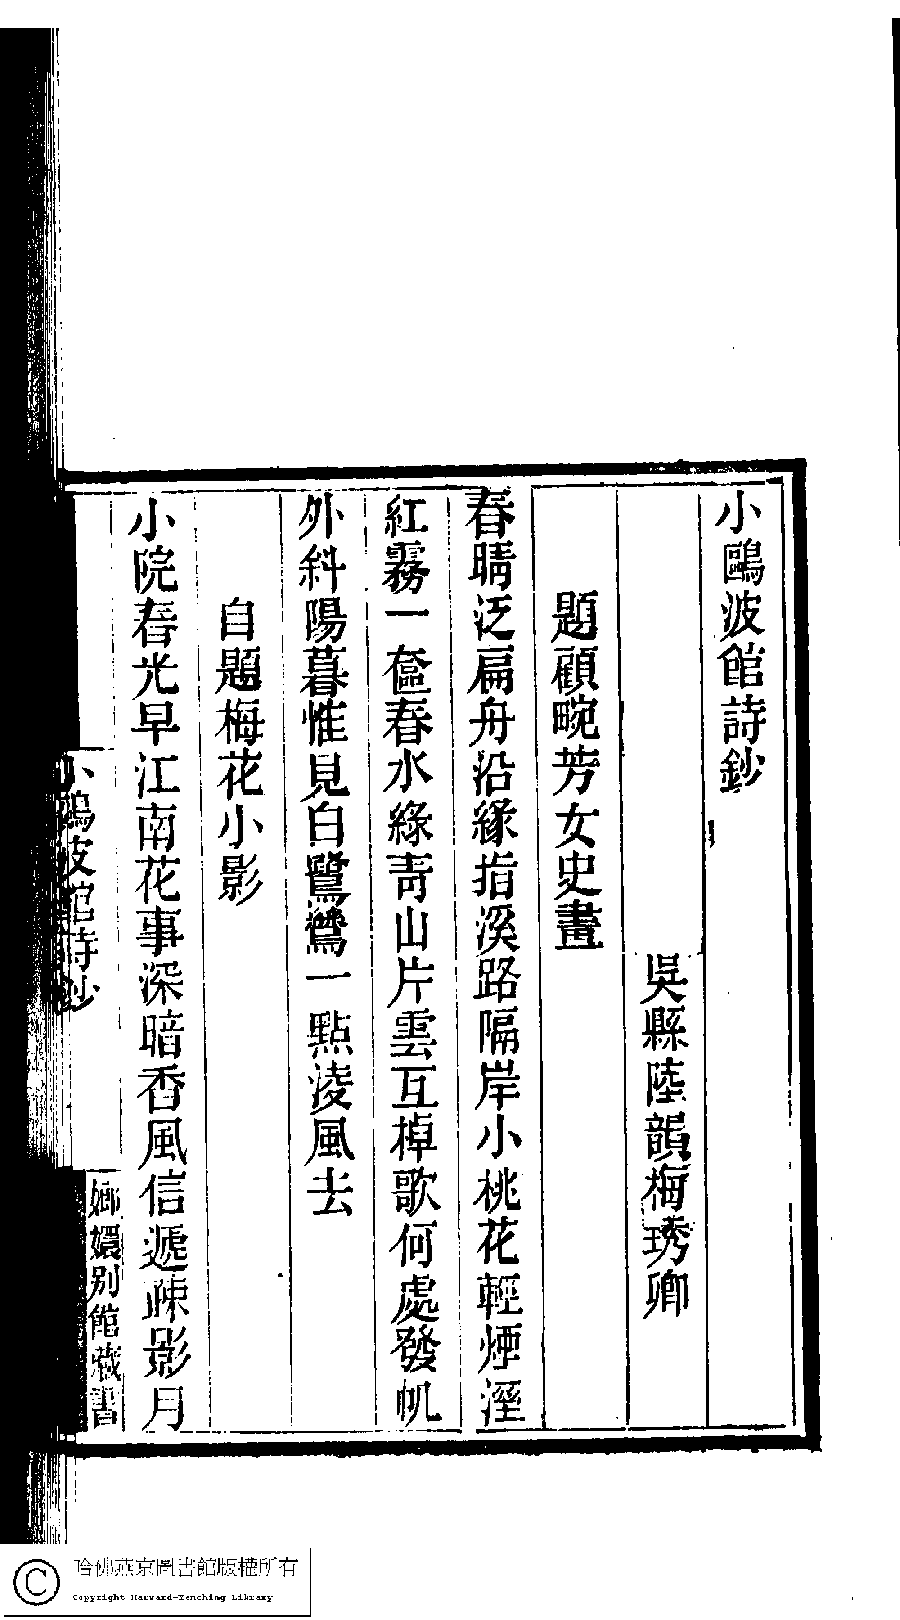 小鷗波館詩鈔
吳縣陸韻梅琇卿
題顧畹芳女史畫
春晴泛扁舟沿緣指溪路隔岸小桃花輕煙溼
紅霧一奩春水綠靑山片雲互棹歌何處發帆
外斜陽暮惟見白鷺鷥一點淩風去
自題梅花小影
小院春光早江南花事深暗香風信遞疎影月
小鷗波館詩鈔
嫏嬛别館藏書
哈佛燕京圖書館版權所有
Copyright Harvard-Yenching Library